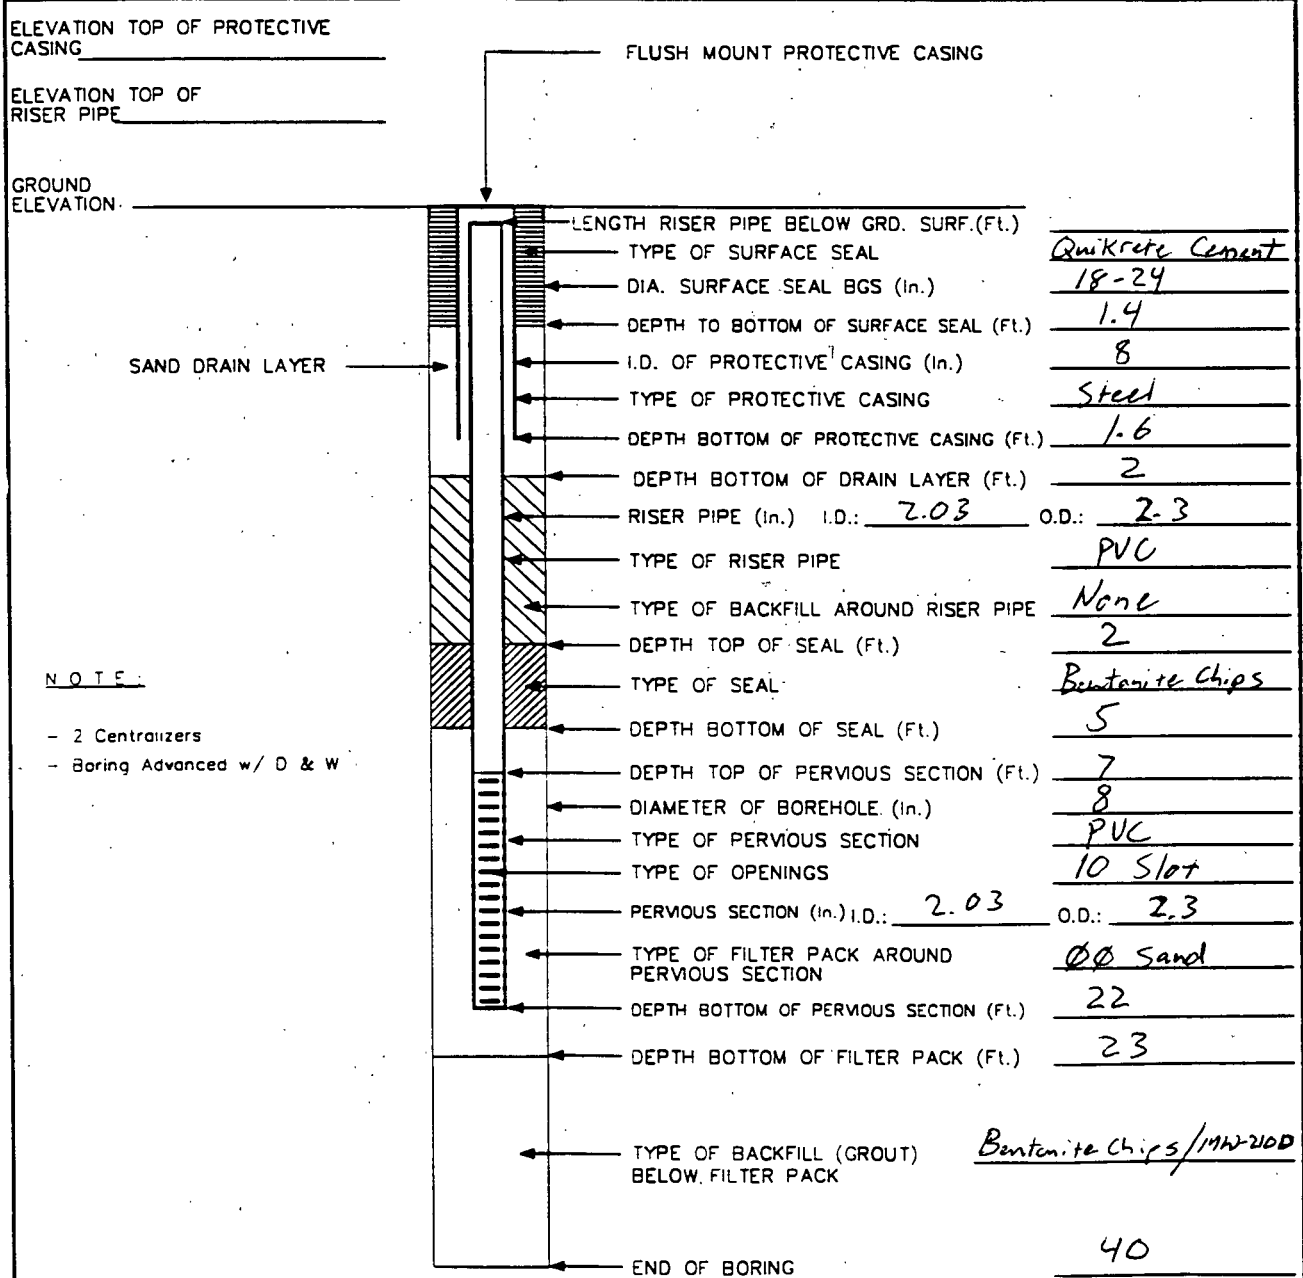 ELEVATION TOP OF PROTECTIVE
CASING
FLUSH MOUNT PROTECTIVE CASING
ELEVATION TOP OF
RISER PIPE
GROUND
ELEVATION
LENGTH RISER PIPE BELOW GRD. SURF.(Ft.)
TYPE OF SURFACE SEAL Quikrete Cement
DIA. SURFACE SEAL BGS (In.) 18-24
DEPTH TO BOTTOM OF SURFACE SEAL (Ft.) 1.4
SAND DRAIN LAYER
I.D. OF PROTECTIVE CASING (In.) 8
TYPE OF PROTECTIVE CASING Steel
DEPTH BOTTOM OF PROTECTIVE CASING (Ft.) 1.6
DEPTH BOTTOM OF DRAIN LAYER (Ft.) 2
RISER PIPE (In.) I.D.: 2.03 O.D.: 2.3
TYPE OF RISER PIPE PVC
TYPE OF BACKFILL AROUND RISER PIPE None
DEPTH TOP OF SEAL (Ft.) 2
NOTE:
- 2 Centralizers
- Boring Advanced w/ D & W
TYPE OF SEAL Bentonite Chips
DEPTH BOTTOM OF SEAL (Ft.) 5
DEPTH TOP OF PERVIOUS SECTION (Ft.) 7
DIAMETER OF BOREHOLE (In.) 8
TYPE OF PERVIOUS SECTION PVC
TYPE OF OPENINGS 10 Slot
PERVIOUS SECTION (In.) I.D.: 2.03 O.D.: 2.3
TYPE OF FILTER PACK AROUND
PERVIOUS SECTION ØØ Sand
DEPTH BOTTOM OF PERVIOUS SECTION (Ft.) 22
DEPTH BOTTOM OF FILTER PACK (Ft.) 23
TYPE OF BACKFILL (GROUT)
BELOW FILTER PACK Bentonite Chips/MW-210D
END OF BORING 40